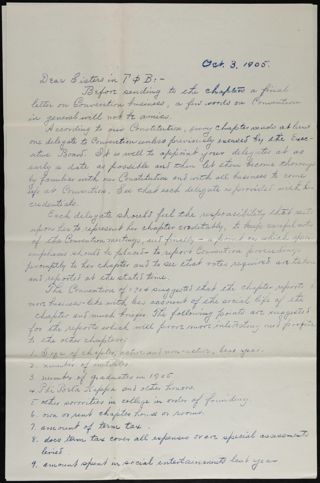 Oct. 3, 1905.
Dear Sisters in Γ Φ B:-
Before sending to the chapters a final
letter on Convention business, a few words on Convention
in general will not be amiss.
According to our Constitution, every chapter sends at least
one delegate to Convention unless previously excused by the Exec-
utive Board. It is well to appoint your delegates at as
early a date as possible and then let them become thorough-
ly familiar with our Constitution and with all business to come
up at Convention. See that each delegate is provided with her
credentials.
Each delegate should feel the responsibility that rests
upon her to represent her chapter creditably, to keep careful notes
of the Convention meetings, and finally - a point on which upon
emphasis should be placed - to report Convention proceedings
promptly to her chapter and to see that votes required are taken
and reported at the stated time.
The Convention of 1904 suggested that the chapter reports be
more business-like with less account of the social life of the
chapter and much briefer. The following points are suggested
for the reports which will prove more interesting and profitable
to the other chapters:
1. Size of chapter, active and non-active, last year.
2. number of initiates.
3. number of graduates in 1905
4. Phi Beta Kappa and other honors.
5. other sororities in college in order of founding.
6. own or rent chapter house or rooms.
7. amount of term tax.
8. does term tax cover all expenses or are special assessments
levied
9. amount spent in social entertainments last year